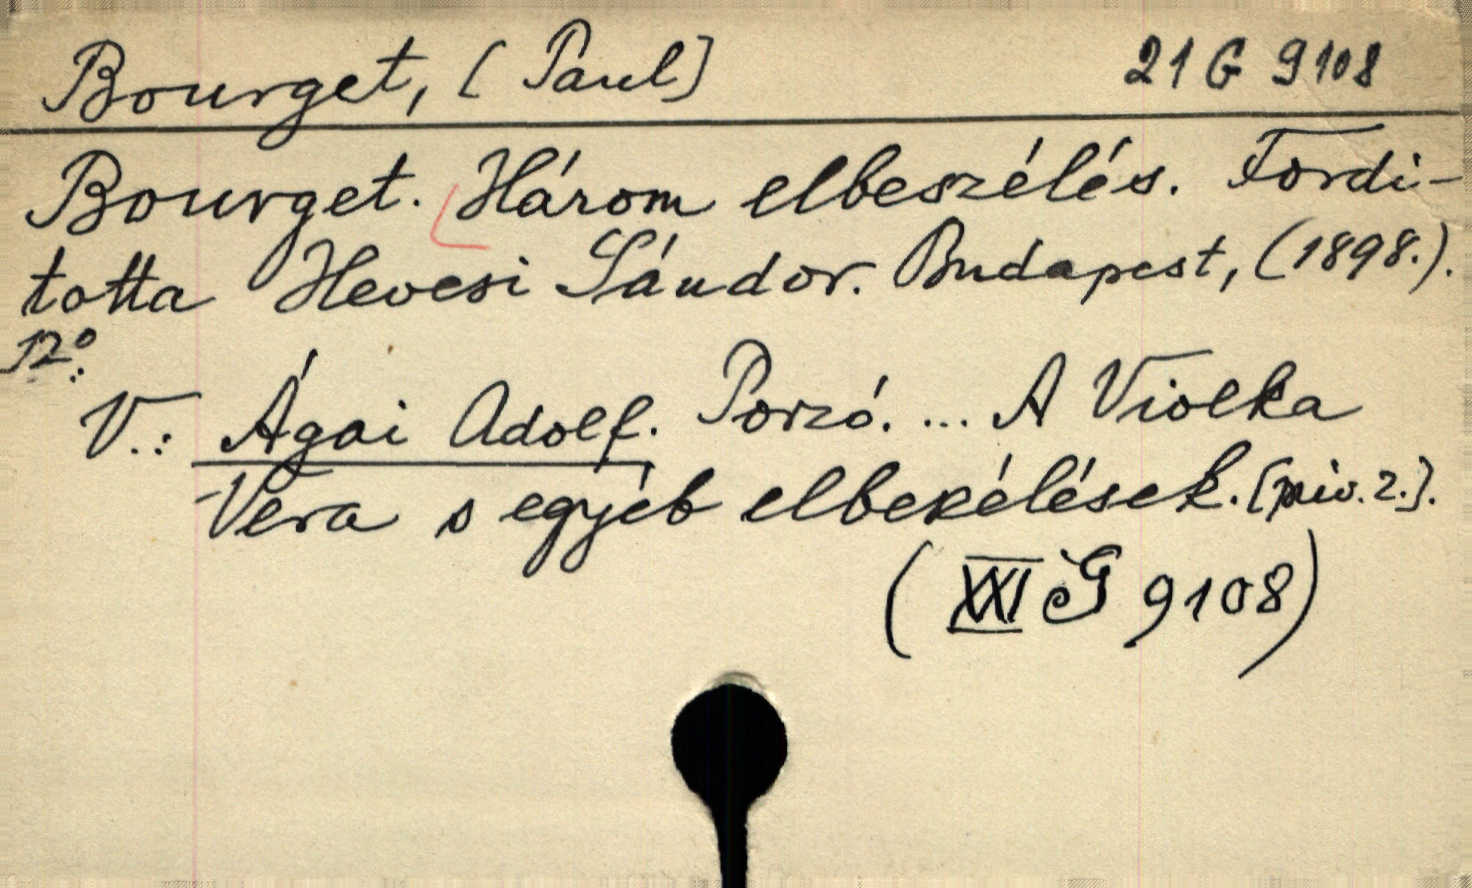 Bourget, [Paul] 21 G 9108
Bourget. Három elbeszélés. Fordi-
totta Hevesi Sándor. Budapest, (1898.).
12°.
V.: Ágai Adolf. Porzó. ... A Violka
Vera s egyéb elbekélések. [priv. 2.].
(XXI G 9108)